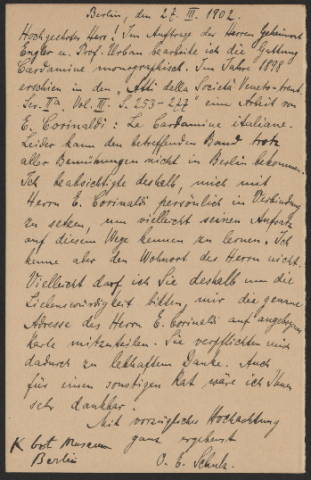 Berlin, den 27. III. 1902.
Hochgeehrter Herr! Im Auftrage der Herren Geheimrat
Engler u. Prof. Urban bearbeite ich die Gattung
Cardamine monographisch. Im Jahre 1898
erschien in den „Atti della Società Veneto-trent.
Ser. IIa. Vol. III. S. 253-277" eine Arbeit von
E. Corinaldi: Le Cardamine italiane.
Leider kann den betreffenden Band trotz
aller Bemühungen nicht in Berlin bekommen.
Ich beabsichtigte deshalb, mich mit
Herrn E. Corinaldi persönlich in Verbindung
zu setzen, um vielleicht seinen Aufsatz
auf diesem Wege kennen zu lernen. Ich
kenne aber den Wohnort des Herrn nicht.
Vielleicht darf ich Sie deshalb um die
Liebenswürdigkeit bitten, mir die genaue
Adresse des Herrn E. Corinaldi auf angebogener
Karte mitzuteilen. Sie verpflichten mich
dadurch zu lebhaftem Danke. Auch
für einen sonstigen Rat wäre ich Ihnen
sehr dankbar.
Mit vorzüglicher Hochachtung
K. bot. Museum ganz ergebenst
Berlin O. E. Schulz.